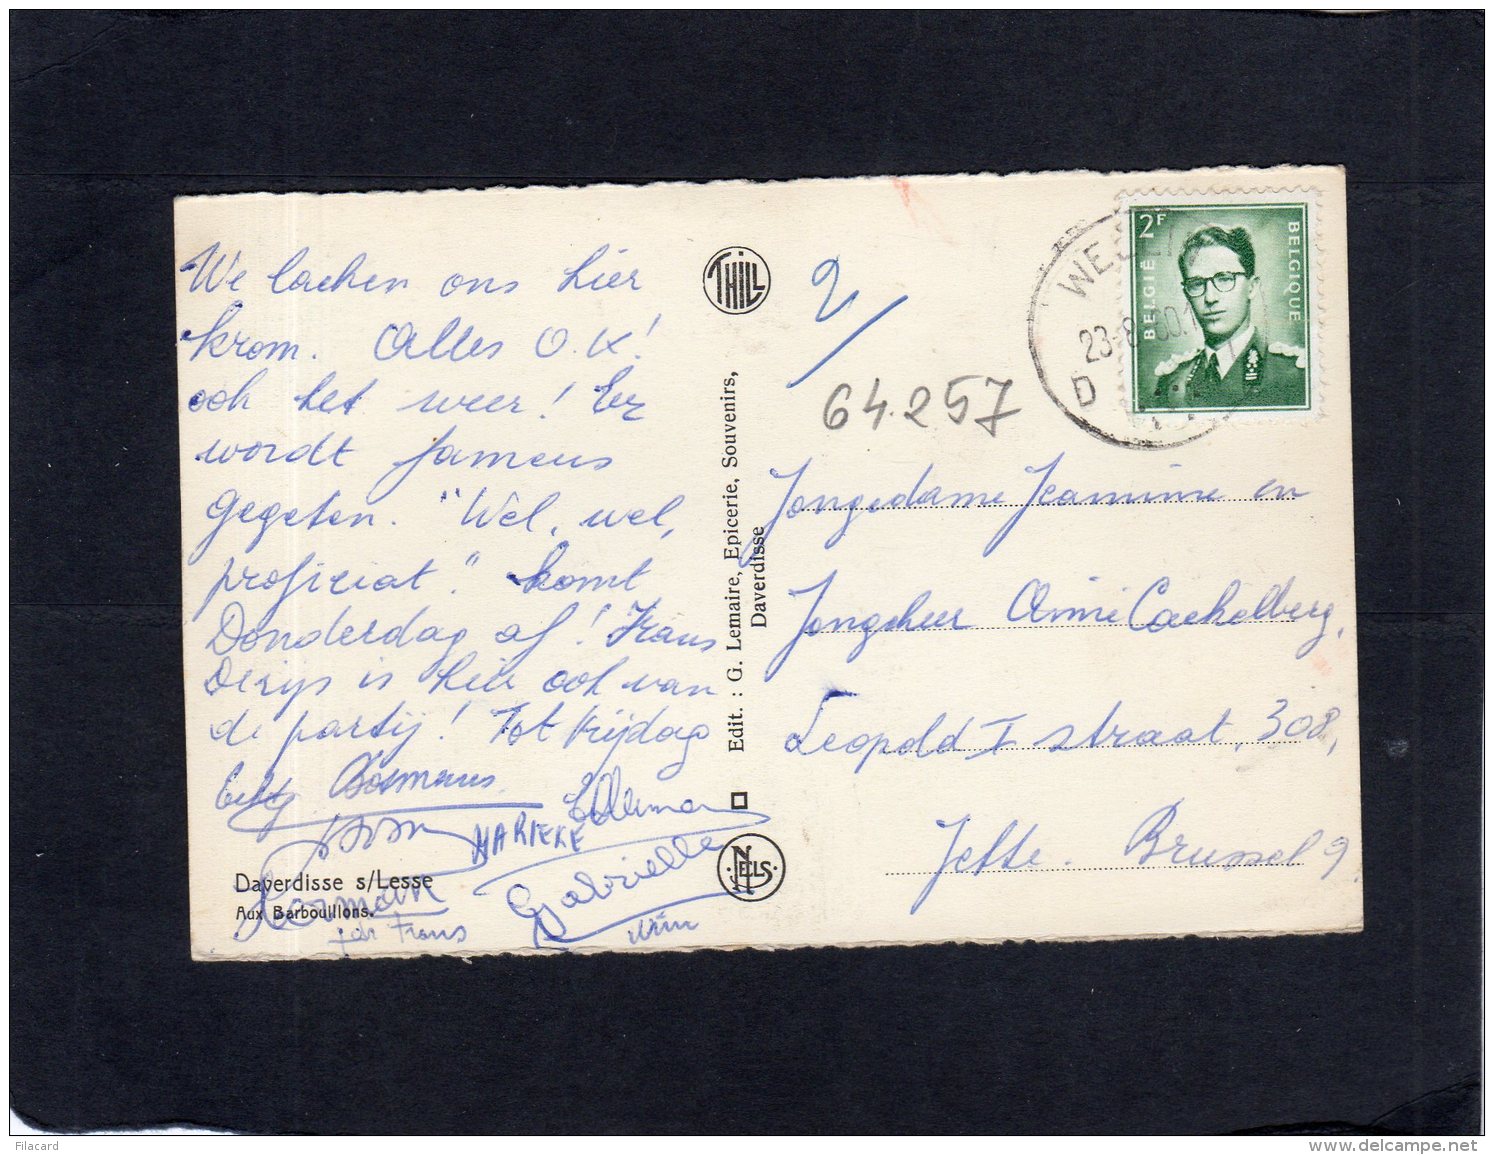 We lachen ons hier
krom. Alles O.K!
ook het weer! Er
wordt fameus
gegeten. "Wel, wel,
proficiat". komt
Donderdag af! Frans
is hier ook van
de partij! Tot Vrijdag
Bosmans
MARIEKE
Gabrielle
Herman
Frans
Wim
Daverdisse s/Lesse
Aux Barbouillons.
THILL
Edit. : G. Lemaire, Epicerie, Souvenirs,
Daverdisse
NELS
2/
64.257
2F
BELGIË
BELGIQUE
23-8
D
Jongedame Jeannine en
Jongeheer Aimé Cackelberg,
Leopold I straat, 308,
Jette. Brussel 9
Filacard
www.delcampe.net